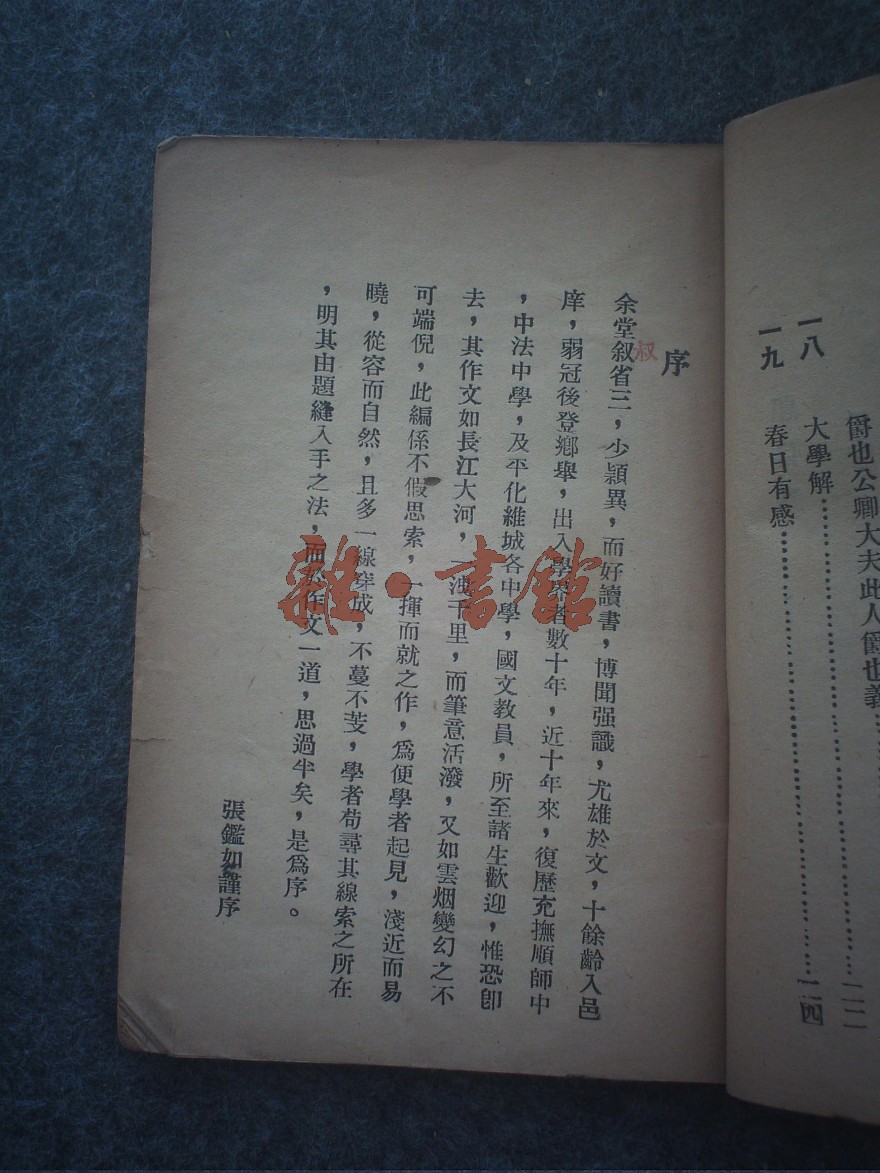 爵也公卿大夫此人爵也義……二二
一八　大學解……二三
一九　春日有感……二四
序
叔
余堂叙省三，少穎異，而好讀書，博聞强識，尤雄於文，十餘齡入邑
庠，弱冠後登鄉舉，出入學界者數十年，近十年來，復歷充撫順師中
，中法中學，及平化維城各中學，國文教員，所至諸生歡迎，惟恐卽
去，其作文如長江大河，一洩千里，而筆意活潑，又如雲烟變幻之不
可端倪，此編係不假思索，一揮而就之作，爲便學者起見，淺近而易
曉，從容而自然，且多一線穿成，不蔓不芰，學者苟尋其線索之所在
，明其由題縫入手之法，而於作文一道，思過半矣，是爲序。
張鑑如謹序
雜·書館